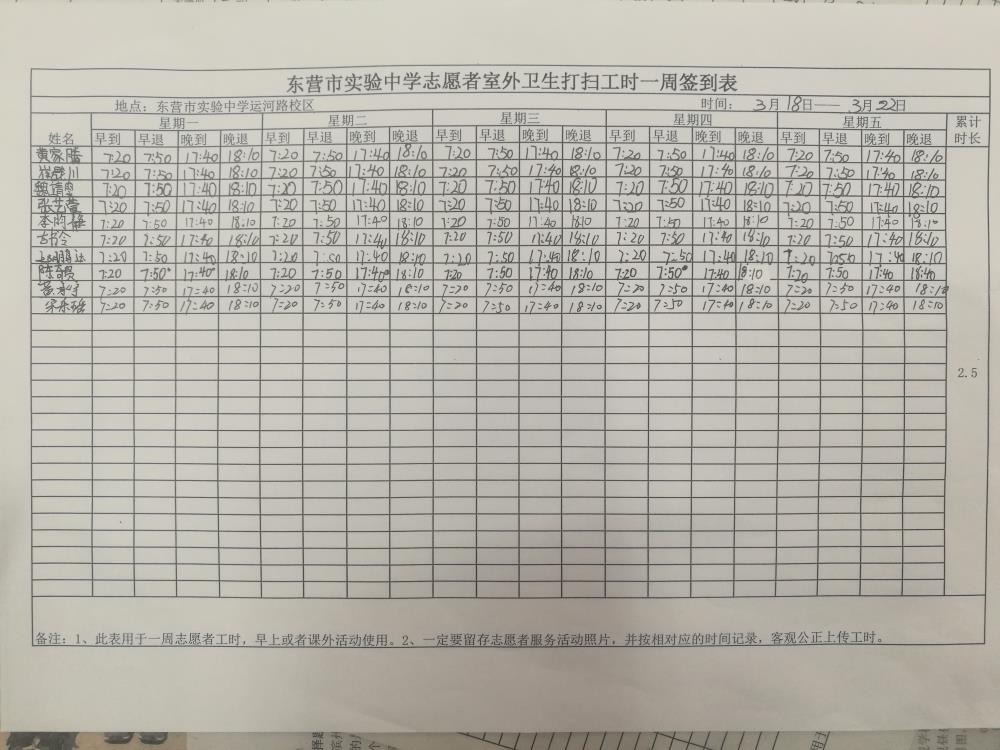 东营市实验中学志愿者室外卫生打扫工时一周签到表
地点：东营市实验中学运河路校区 时间： 3月18日——3月22日
姓名 星期一 星期二 星期三 星期四 星期五 累计时长
早到 早退 晚到 晚退 早到 早退 晚到 晚退 早到 早退 晚到 晚退 早到 早退 晚到 晚退 早到 早退 晚到 晚退
7:20 7:50 17:40 18:10 7:20 7:50 17:40 18:10 7:20 7:50 17:40 18:10 7:20 7:50 17:40 18:10 7:20 7:50 17:40 18:10
7:20 7:50 17:40 18:10 7:20 7:50 17:40 18:10 7:20 7:50 17:40 18:10 7:20 7:50 17:40 18:10 7:20 7:50 17:40 18:10
7:20 7:50 17:40 18:10 7:20 7:50 17:40 18:10 7:20 7:50 17:40 18:10 7:20 7:50 17:40 18:10 7:20 7:50 17:40 18:10
张艺萱 7:20 7:50 17:40 18:10 7:20 7:50 17:40 18:10 7:20 7:50 17:40 18:10 7:20 7:50 17:40 18:10 7:20 7:50 17:40 18:10
7:20 7:50 17:40 18:10 7:20 7:50 17:40 18:10 7:20 7:50 17:40 18:10 7:20 7:50 17:40 18:10 7:20 7:50 17:40 18:10
7:20 7:50 17:40 18:10 7:20 7:50 17:40 18:10 7:20 7:50 17:40 18:10 7:20 7:50 17:40 18:10 7:20 7:50 17:40 18:10
7:20 7:50 17:40 18:10 7:20 7:50 17:40 18:10 7:20 7:50 17:40 18:10 7:20 7:50 17:40 18:10 7:20 17:40 18:10
7:20 7:50 17:40 18:10 7:20 7:50 17:40 18:10 7:20 7:50 17:40 18:10 7:20 7:50 17:40 18:10 7:20 7:50 17:40 18:40
7:20 7:50 17:40 18:10 7:20 7:50 17:40 18:10 7:20 7:50 17:40 18:10 7:20 7:50 17:40 18:10 7:20 7:50 17:40 18:10
7:20 7:50 17:40 18:10 7:20 7:50 17:40 18:10 7:20 7:50 17:40 18:10 7:20 7:50 17:40 18:10 7:20 7:50 17:40 18:10
2.5
备注：1、此表用于一周志愿者工时，早上或者课外活动使用。2、一定要留存志愿者服务活动照片，并按相对应的时间记录，客观公正上传工时。